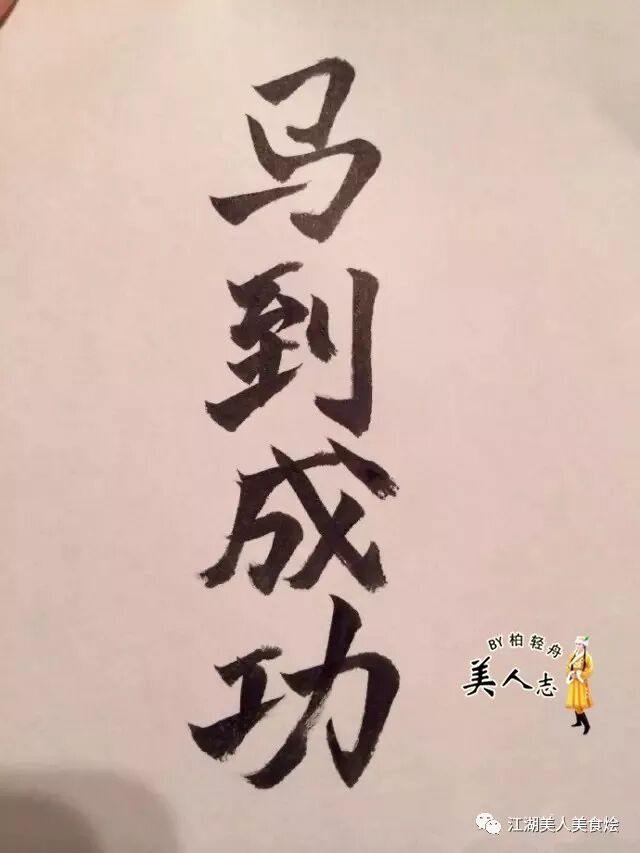 马到成功
BY柏轻舟
美人志
江湖美人美食烩